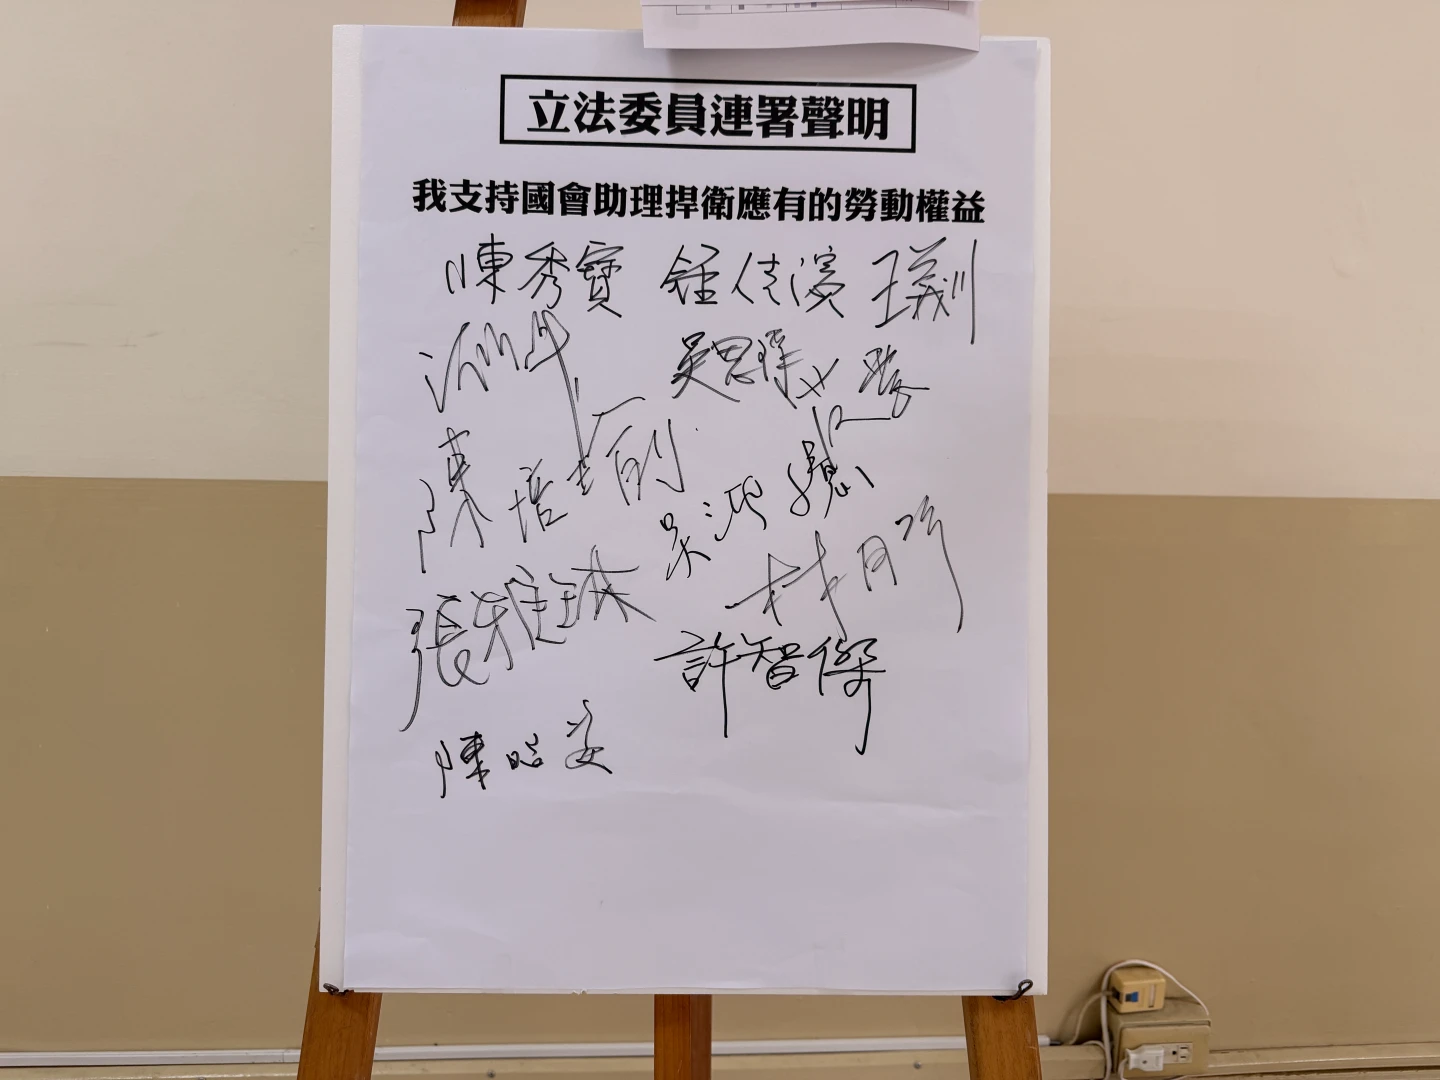 立法委員連署聲明
我支持國會助理捍衛應有的勞動權益
陳秀寳 鍾佳濱 王義川
吳思瑤
陳培瑜
張雅琳 林月琴
許智傑
陳昭姿